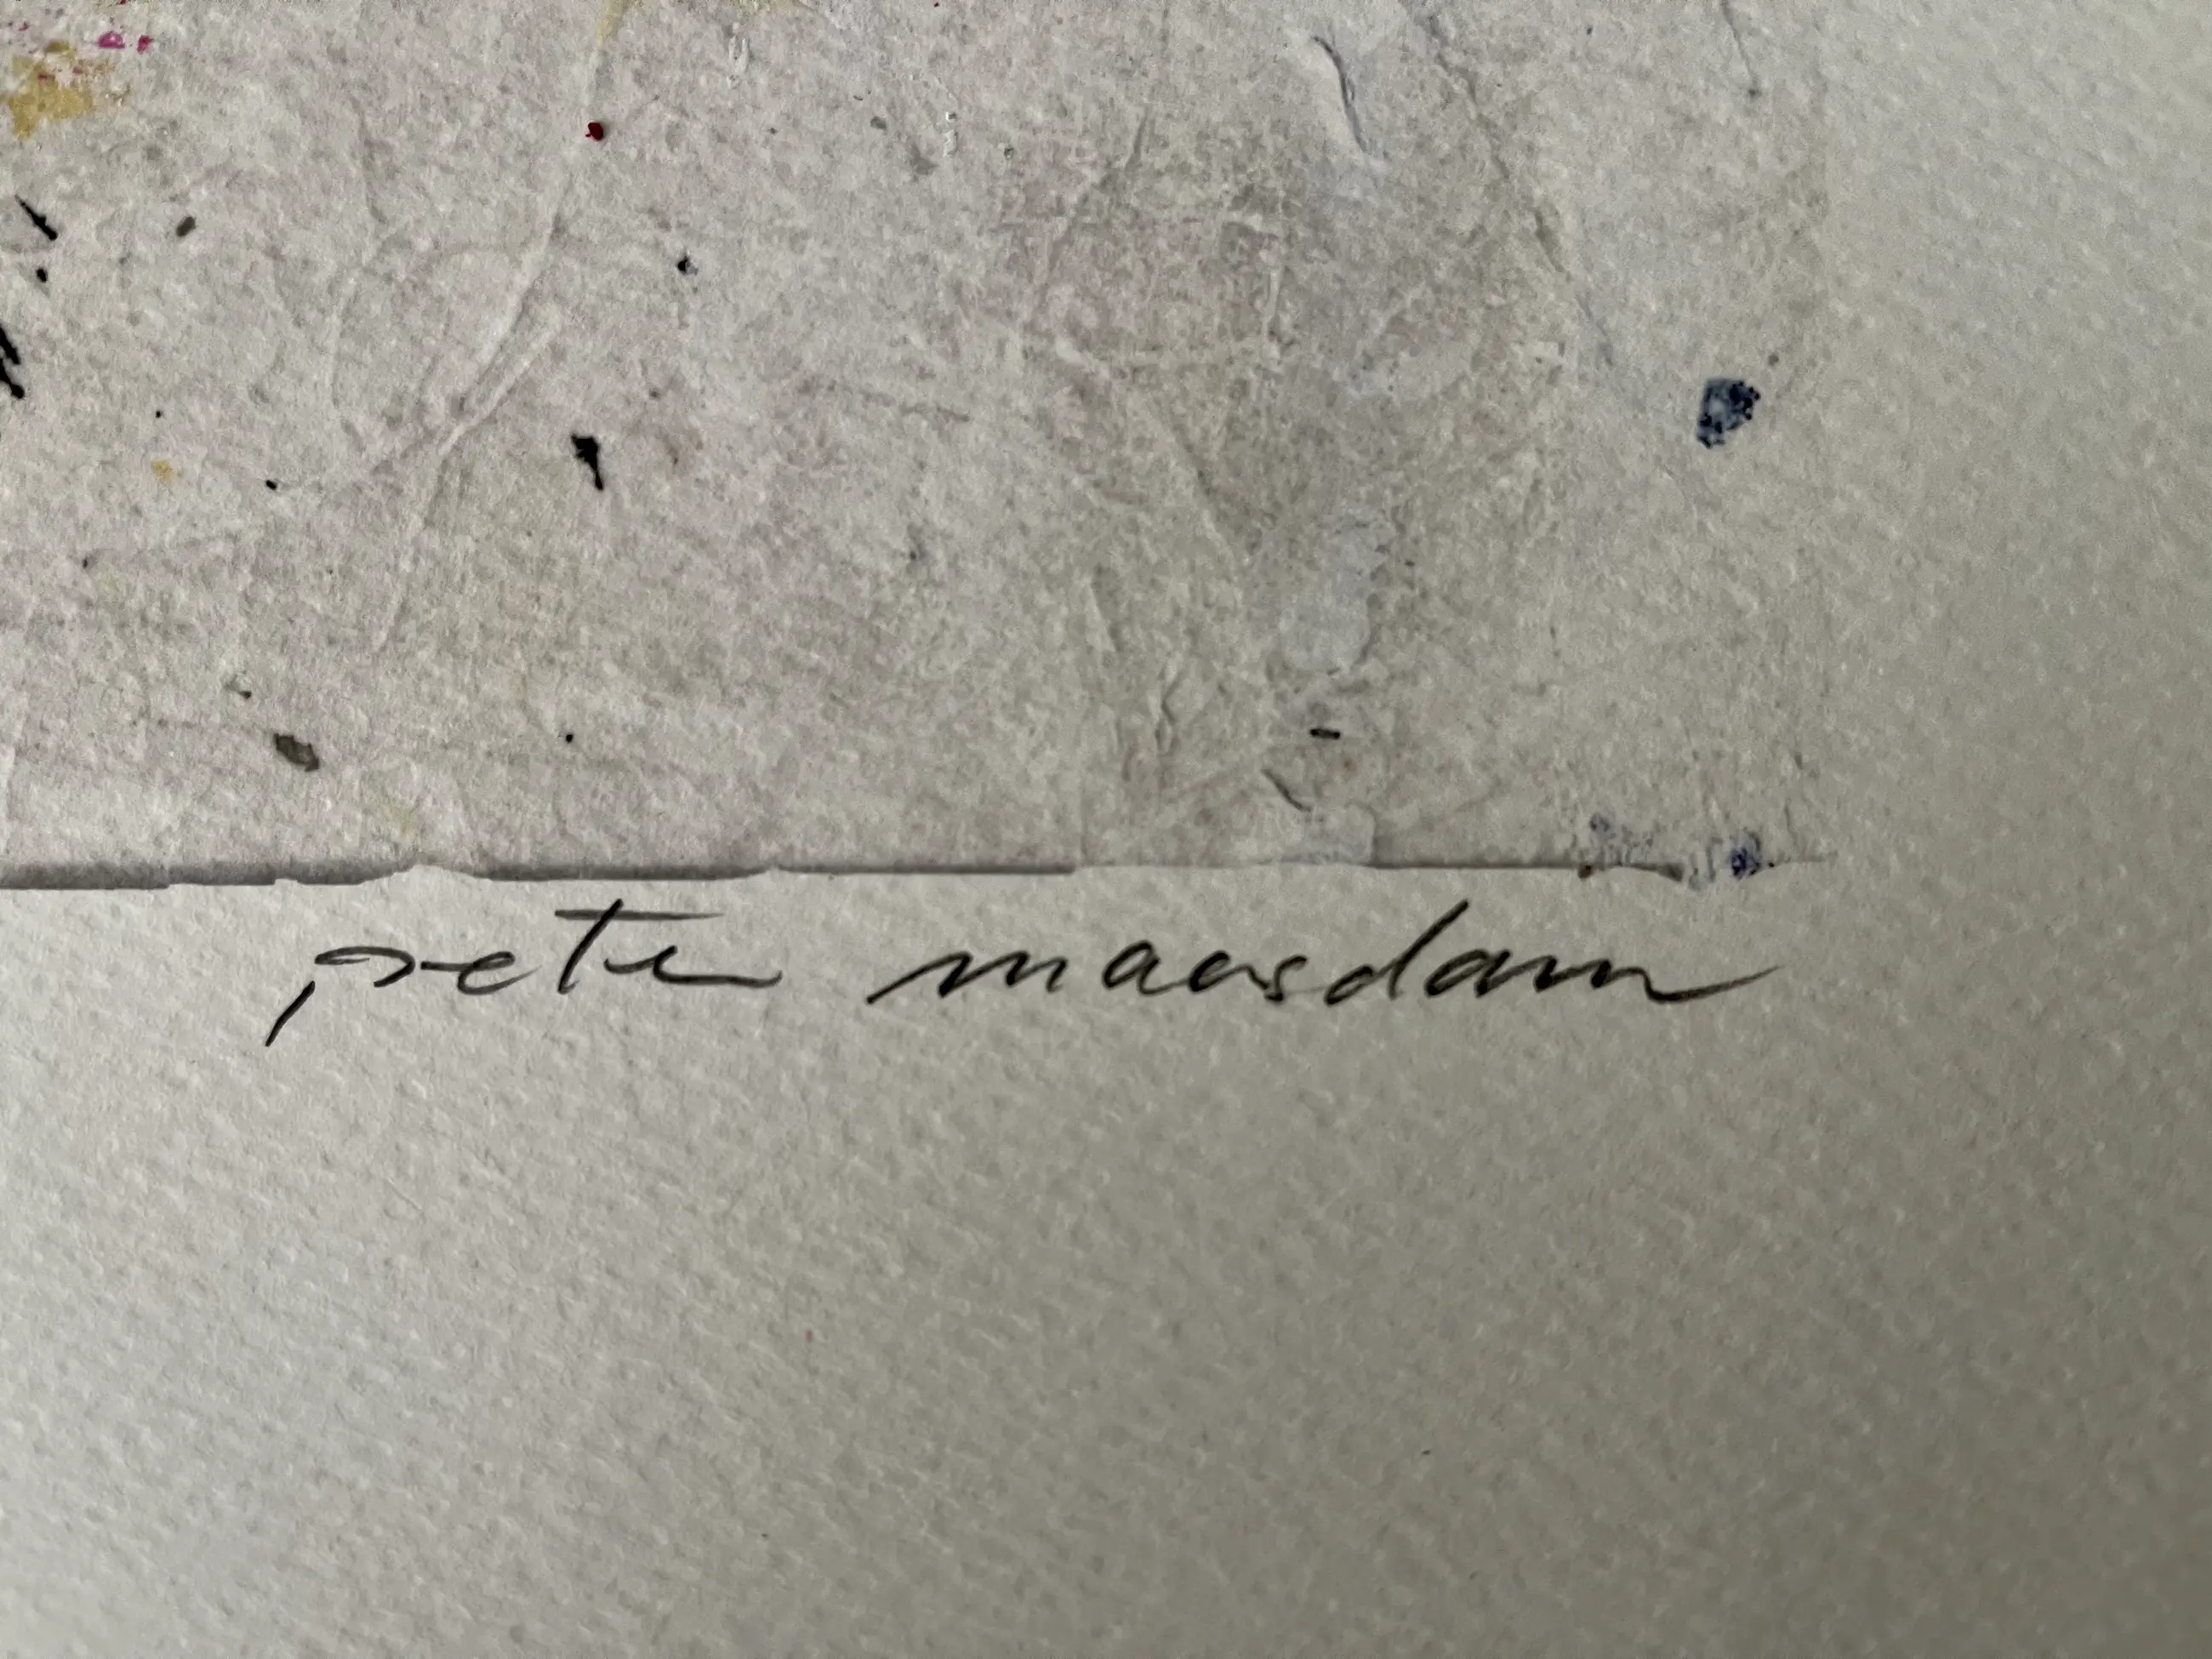 peter maasdam